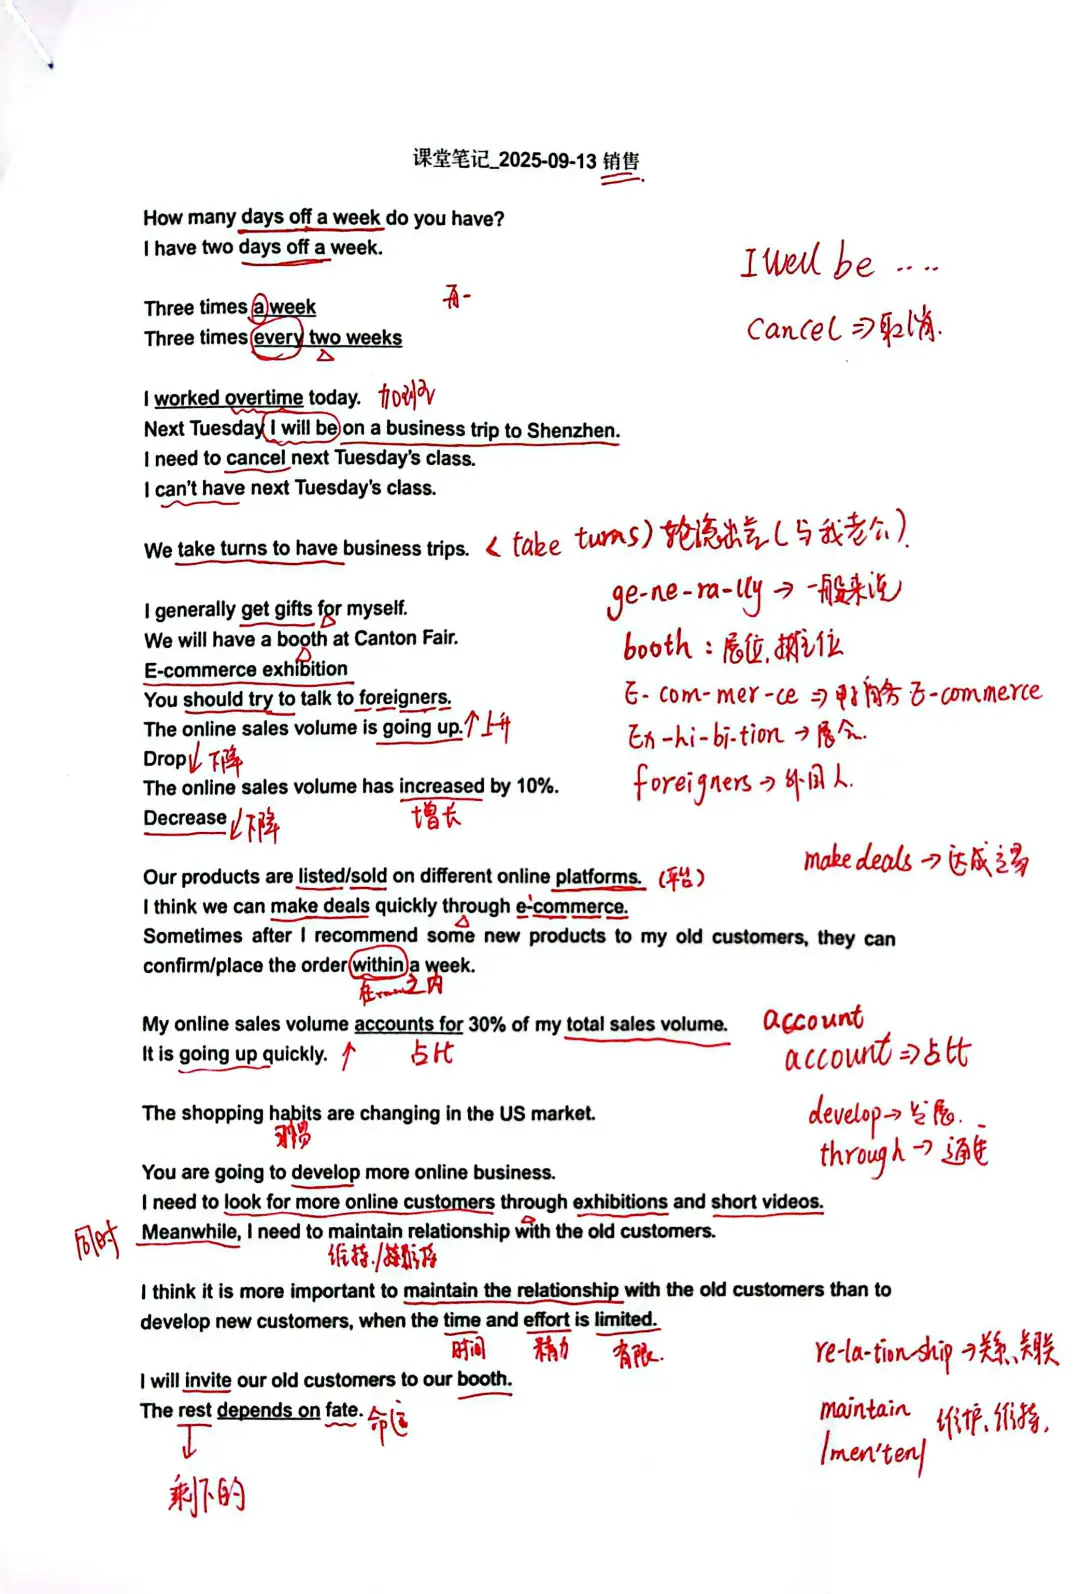 课堂笔记_2025-09-13 销售
How many days off a week do you have?
I have two days off a week.
I will be ....
Three times a week
再一
Three times every two weeks
cancel ⇒取消.
I worked overtime today. 加班
Next Tuesday I will be on a business trip to Shenzhen.
I need to cancel next Tuesday's class.
I can't have next Tuesday's class.
We take turns to have business trips. < take turns) 轮流出差(与我老公).
ge-ne-ra-lly → 一般来说
I generally get gifts for myself.
We will have a booth at Canton Fair.
booth : 展位,摊位
E-commerce exhibition
E-com-mer-ce ⇒ 电商务 E-commerce
You should try to talk to foreigners.
The online sales volume is going up.↑上升
Ex-hi-bi-tion → 展会.
Drop↓下降
foreigners → 外国人.
The online sales volume has increased by 10%.
增长
Decrease↓下降
make deals → 达成交易
Our products are listed/sold on different online platforms. (平台)
I think we can make deals quickly through e-commerce.
Sometimes after I recommend some new products to my old customers, they can
confirm/place the order within a week.
在……之内
My online sales volume accounts for 30% of my total sales volume.
account
It is going up quickly. ↑ 占比
account ⇒占比
The shopping habits are changing in the US market.
习惯
develop → 发展.
through → 通过
You are going to develop more online business.
I need to look for more online customers through exhibitions and short videos.
同时
Meanwhile, I need to maintain relationship with the old customers.
维持./
I think it is more important to maintain the relationship with the old customers than to
develop new customers, when the time and effort is limited.
时间 精力 有限.
re-la-tion-ship →关系、关联
I will invite our old customers to our booth.
The rest depends on fate. 命运
maintain 维护、维持.
/men'ten/
剩下的